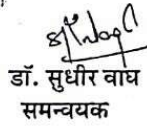 डॉ. सुधीर वाघ
समन्वयक